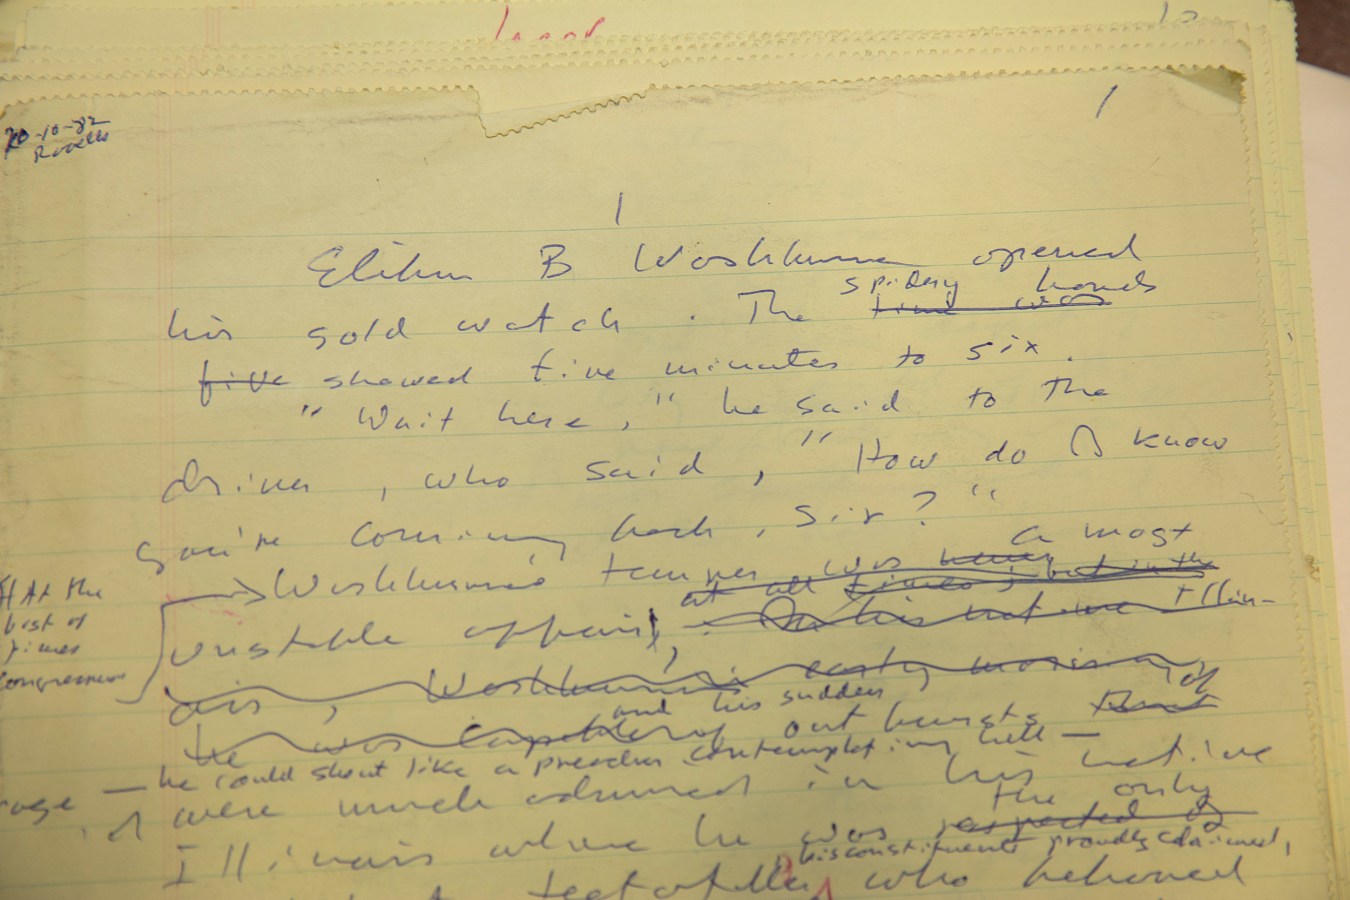 1
20-10-82
Ravello
1
Elihu B Washburne opened
his gold watch. The spidery hands
time was
five showed five minutes to six.
"Wait here," he said to the
driver, who said, "How do I know
you're coming back, sir?"
At the
best of
times
Congressman
Washburne's temper was a most
at all times; but in the
unstable affair,
Washburne's early morning
he was capable of
and his sudden outbursts of
rage — he could shout like a preacher contemplating hell —
were much admired in his native
Illinois where he was the only
respected
his constituents proudly claimed,
teetotaller who behaved